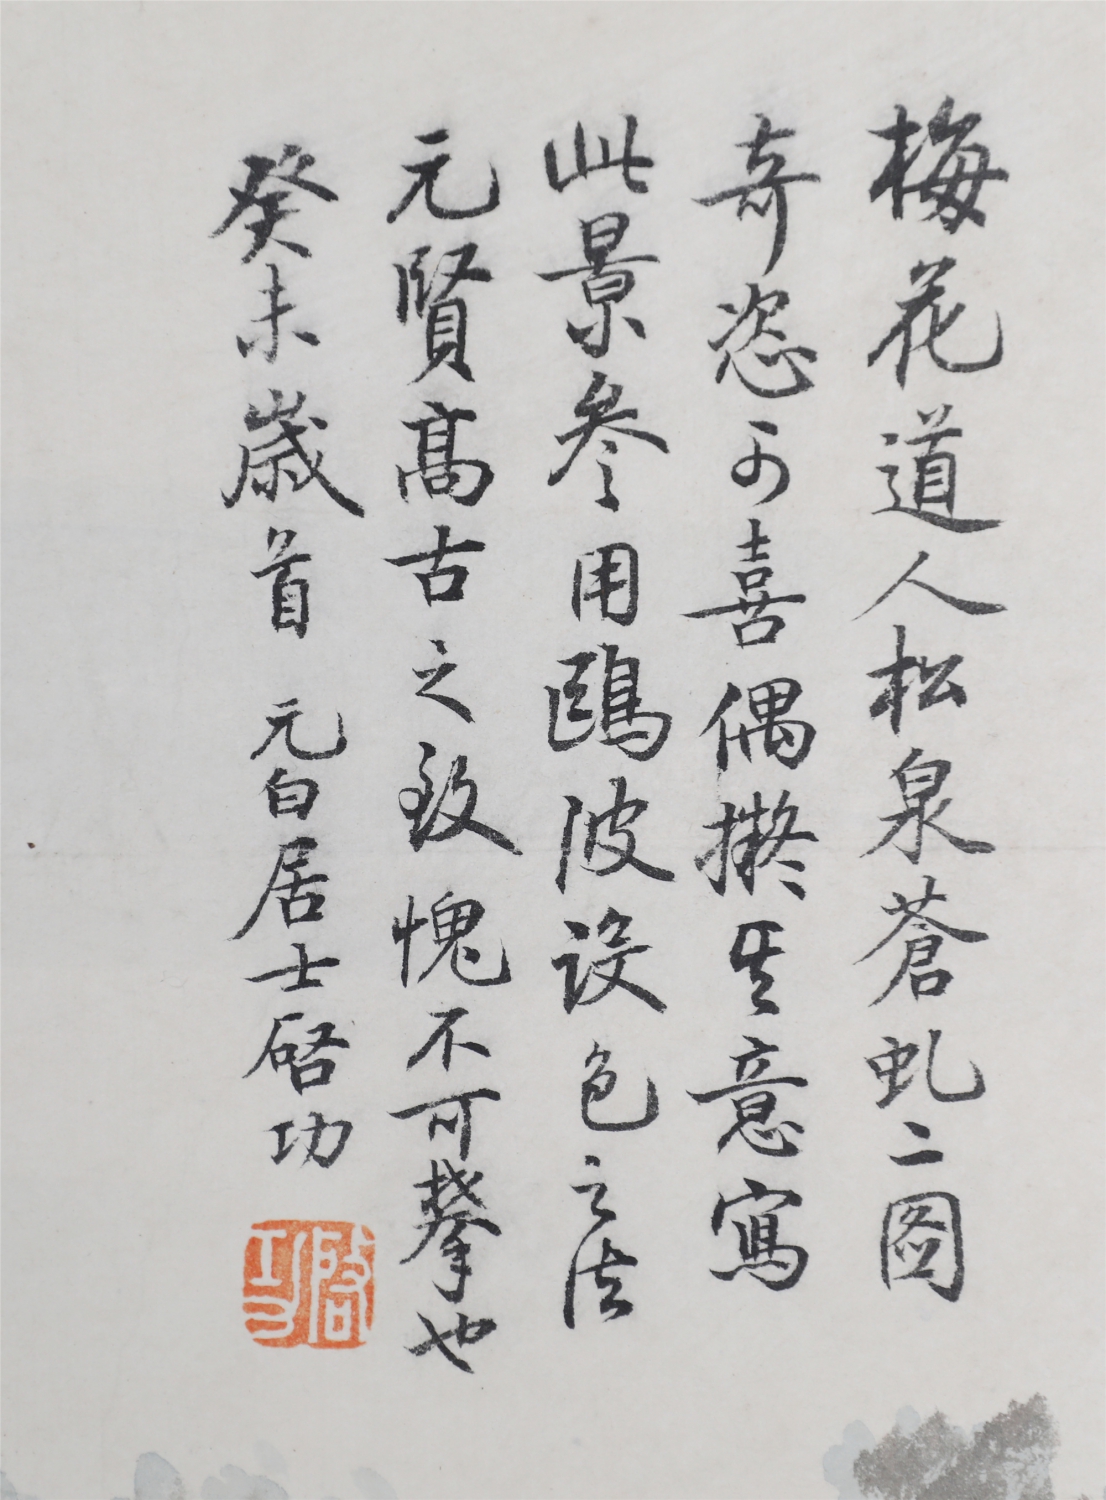 梅花道人松泉蒼虬二圖
奇恣可喜偶擬其意寫
此景參用鷗波設色之法
元賢髙古之致愧不可攀也
癸未歲首 元白居士啓功
啟功